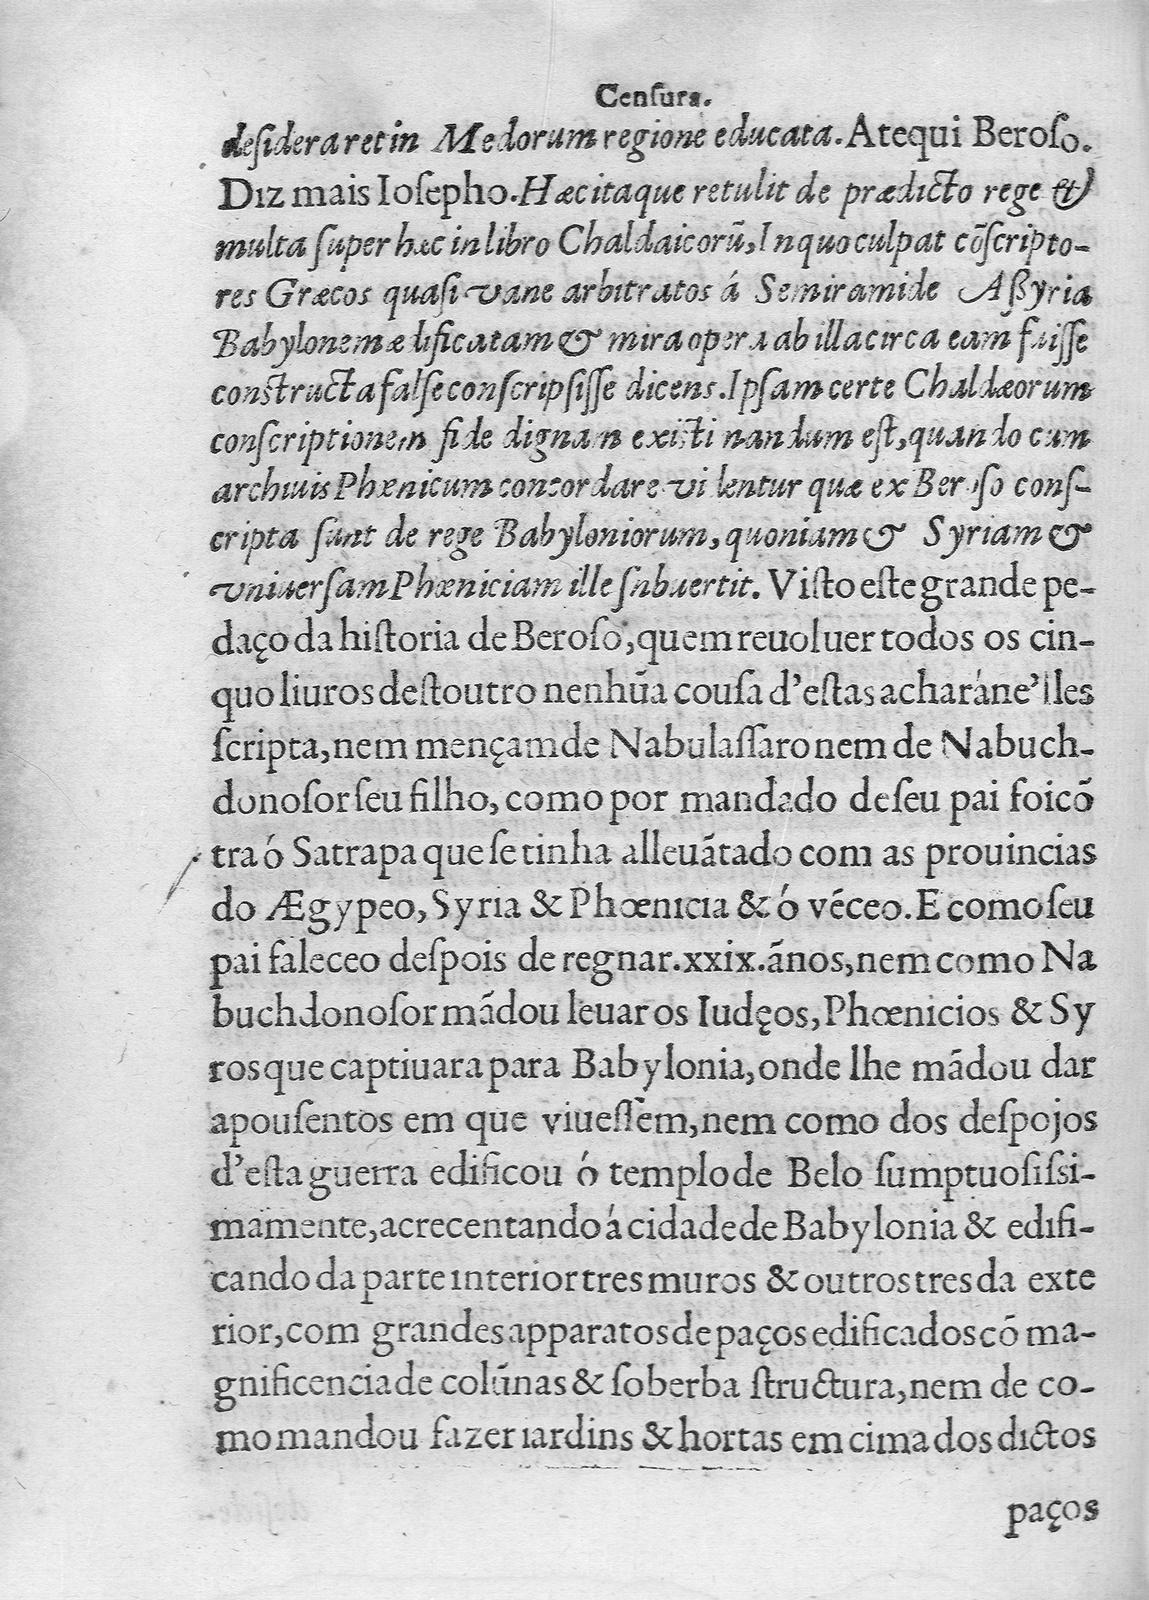 Cenſura.
deſideraret in Medorum regione educata. Atequi Beroſo.
Diz mais Ioſepho. Hæc itaque retulit de prædicto rege &
multa ſuper hæc in libro Chaldaicorũ, In quo culpat cõſcripto-
res Græcos quaſi vane arbitratos á Semiramide Aßyria
Babylonem ædificatam & mira opera ab illa circa eam fuiſſe
constructa falſe conſcripſiſſe dicens. Ipſam certe Chaldæorum
conſcriptionem fide dignam existimandum eſt, quando cum
archiuis Phœnicum concordare videntur quæ ex Beroſo conſ-
cripta ſunt de rege Babyloniorum, quoniam & Syriam &
vniuerſam Phœniciam ille ſnbuertit. Viſto eſte grande pe-
daço da hiſtoria de Beroſo, quem reuoluer todos os cin-
quo liuros deſtoutro nenhũa couſa d'eſtas achará ne'lles
ſcripta, nem mençam de Nabulaſſaro nem de Nabuch-
donoſor ſeu filho, como por mandado de ſeu pai foi cõ
tra ó Satrapa que ſe tinha alleuãtado com as prouincias
do Ægypeo, Syria & Phœnicia & ó véceo. E como ſeu
pai faleceo deſpois de regnar .xxix. ãnos, nem como Na
buchdonoſor mãdou leuar os Iudęos, Phœnicios & Sy
ros que captiuara para Babylonia, onde lhe mãdou dar
apouſentos em que viueſſem, nem como dos deſpojos
d'eſta guerra edificou ó templo de Belo ſumptuoſiſsi-
mamente, acrecentando á cidade de Babylonia & edifi-
cando da parte interior tres muros & outros tres da exte
rior, com grandes apparatos de paços edificados cõ ma-
gnificencia de colũnas & ſoberba ſtructura, nem de co-
mo mandou fazer iardins & hortas em cima dos dictos
paços